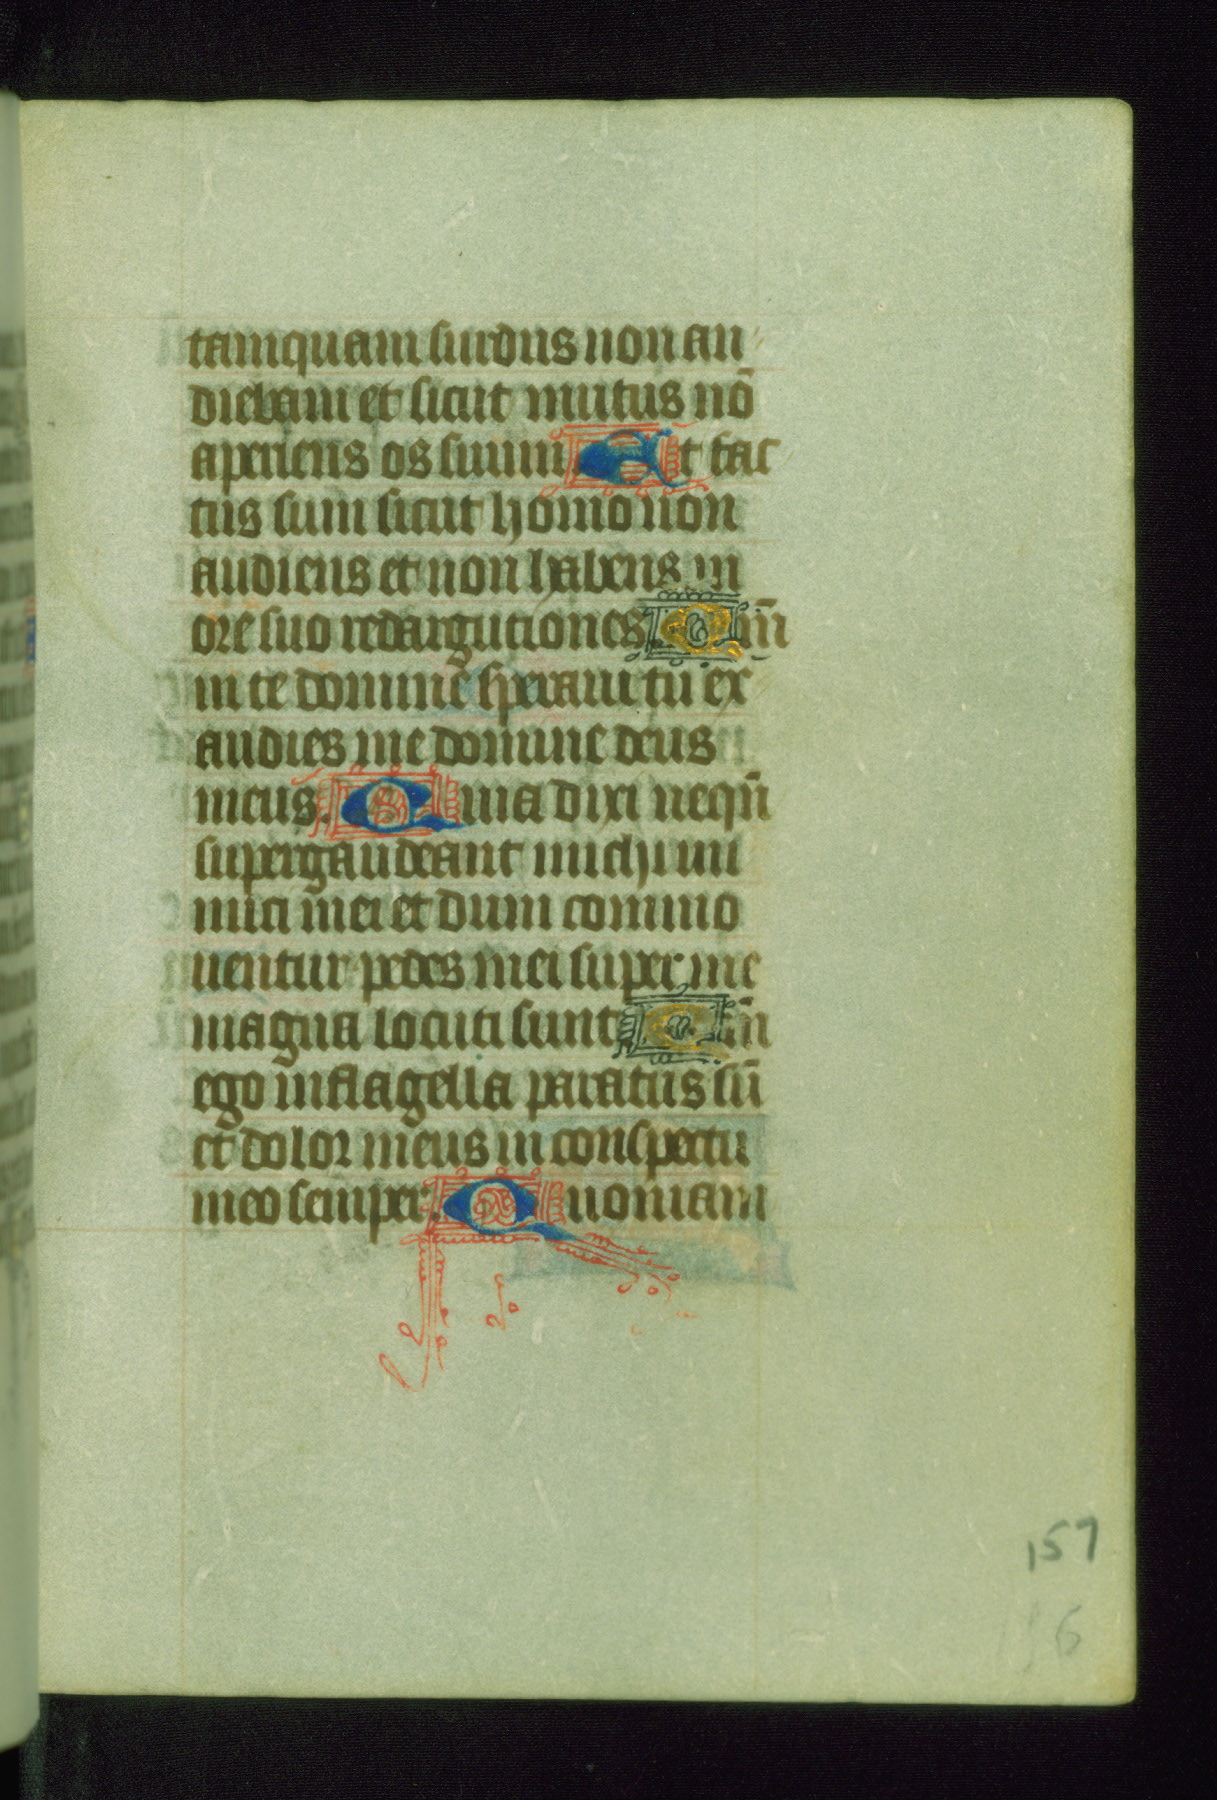 tamquam surdus non au
diebam et sicut mutus nō
aperiens os suum Et fac
tus sum sicut homo non
audiens et non habens in
ore suo redargutiones. Qm̄
in te domine speraui tu ex
audies me domine deus
meus. Quia dixi nequn̄
supergaudeant michi ini
mici mei et dum commo
uentur pedes mei super me
magna locuti sunt Qm̄
ego in flagella paratus sū
et dolor meus in conspectu
meo semper. Quoniam
157
6